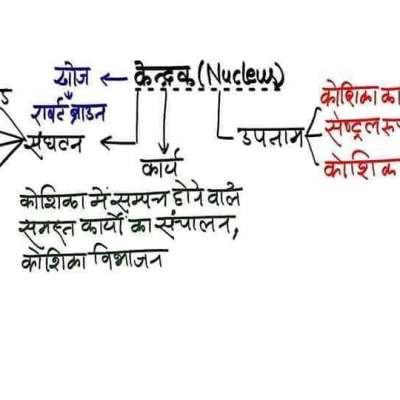 खोज ← केन्द्रक (Nucleus)
राबर्ट ब्राउन
संघटन ←
कार्य
उपनाम
कोशिका का
सेण्ट्रल रू
कोशिका क
कोशिका में सम्पन्न होने वाले
समस्त कार्यों का संचालन,
कोशिका विभाजन